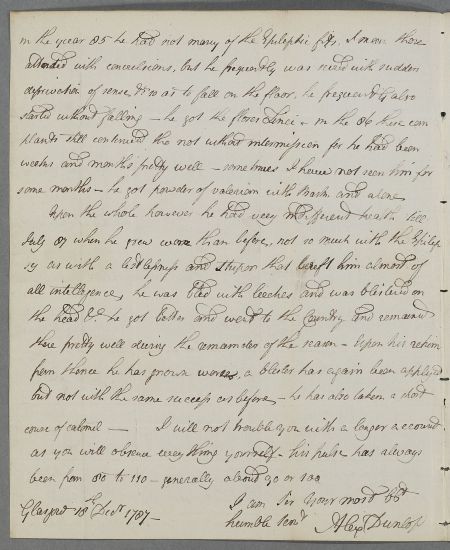 in the year 85 he had not many of the Epileptic fits, I mean those
attended with convulsions, but he frequently was seized with sudden
deprivation of sense, & so as to fall on the floor, he frequently also
started without falling – he got the flores Zinci – in the 86 these com
plaints still continued, tho not without intermission for he had been
weeks and months pretty well – sometimes I have not seen him for
some months – he got powder of valerian with bark and alone
Upon the whole however he had very indifferent health till
July 87 when he grew worse than before, not so much with the Epilep
sy as with a listlessness and stupor that bereft him almost of
all intelligence, he was bled with leeches and was blistered on
the head &c he got better and went to the Country and remained
there pretty well during the remainder of the season – Upon his return
from thence he has grown worse, a blister has again been applyed
but not with the same success as before – he has also taken a short
course of calomel — I will not trouble you with a longer account
as you will observe every thing yourself – his pulse has always
been from 80 to 110 – generally about 90 or 100
I am Sir Your most obt
Glasgow 18th Decr 1787 – humble servt Alexr Dunlop